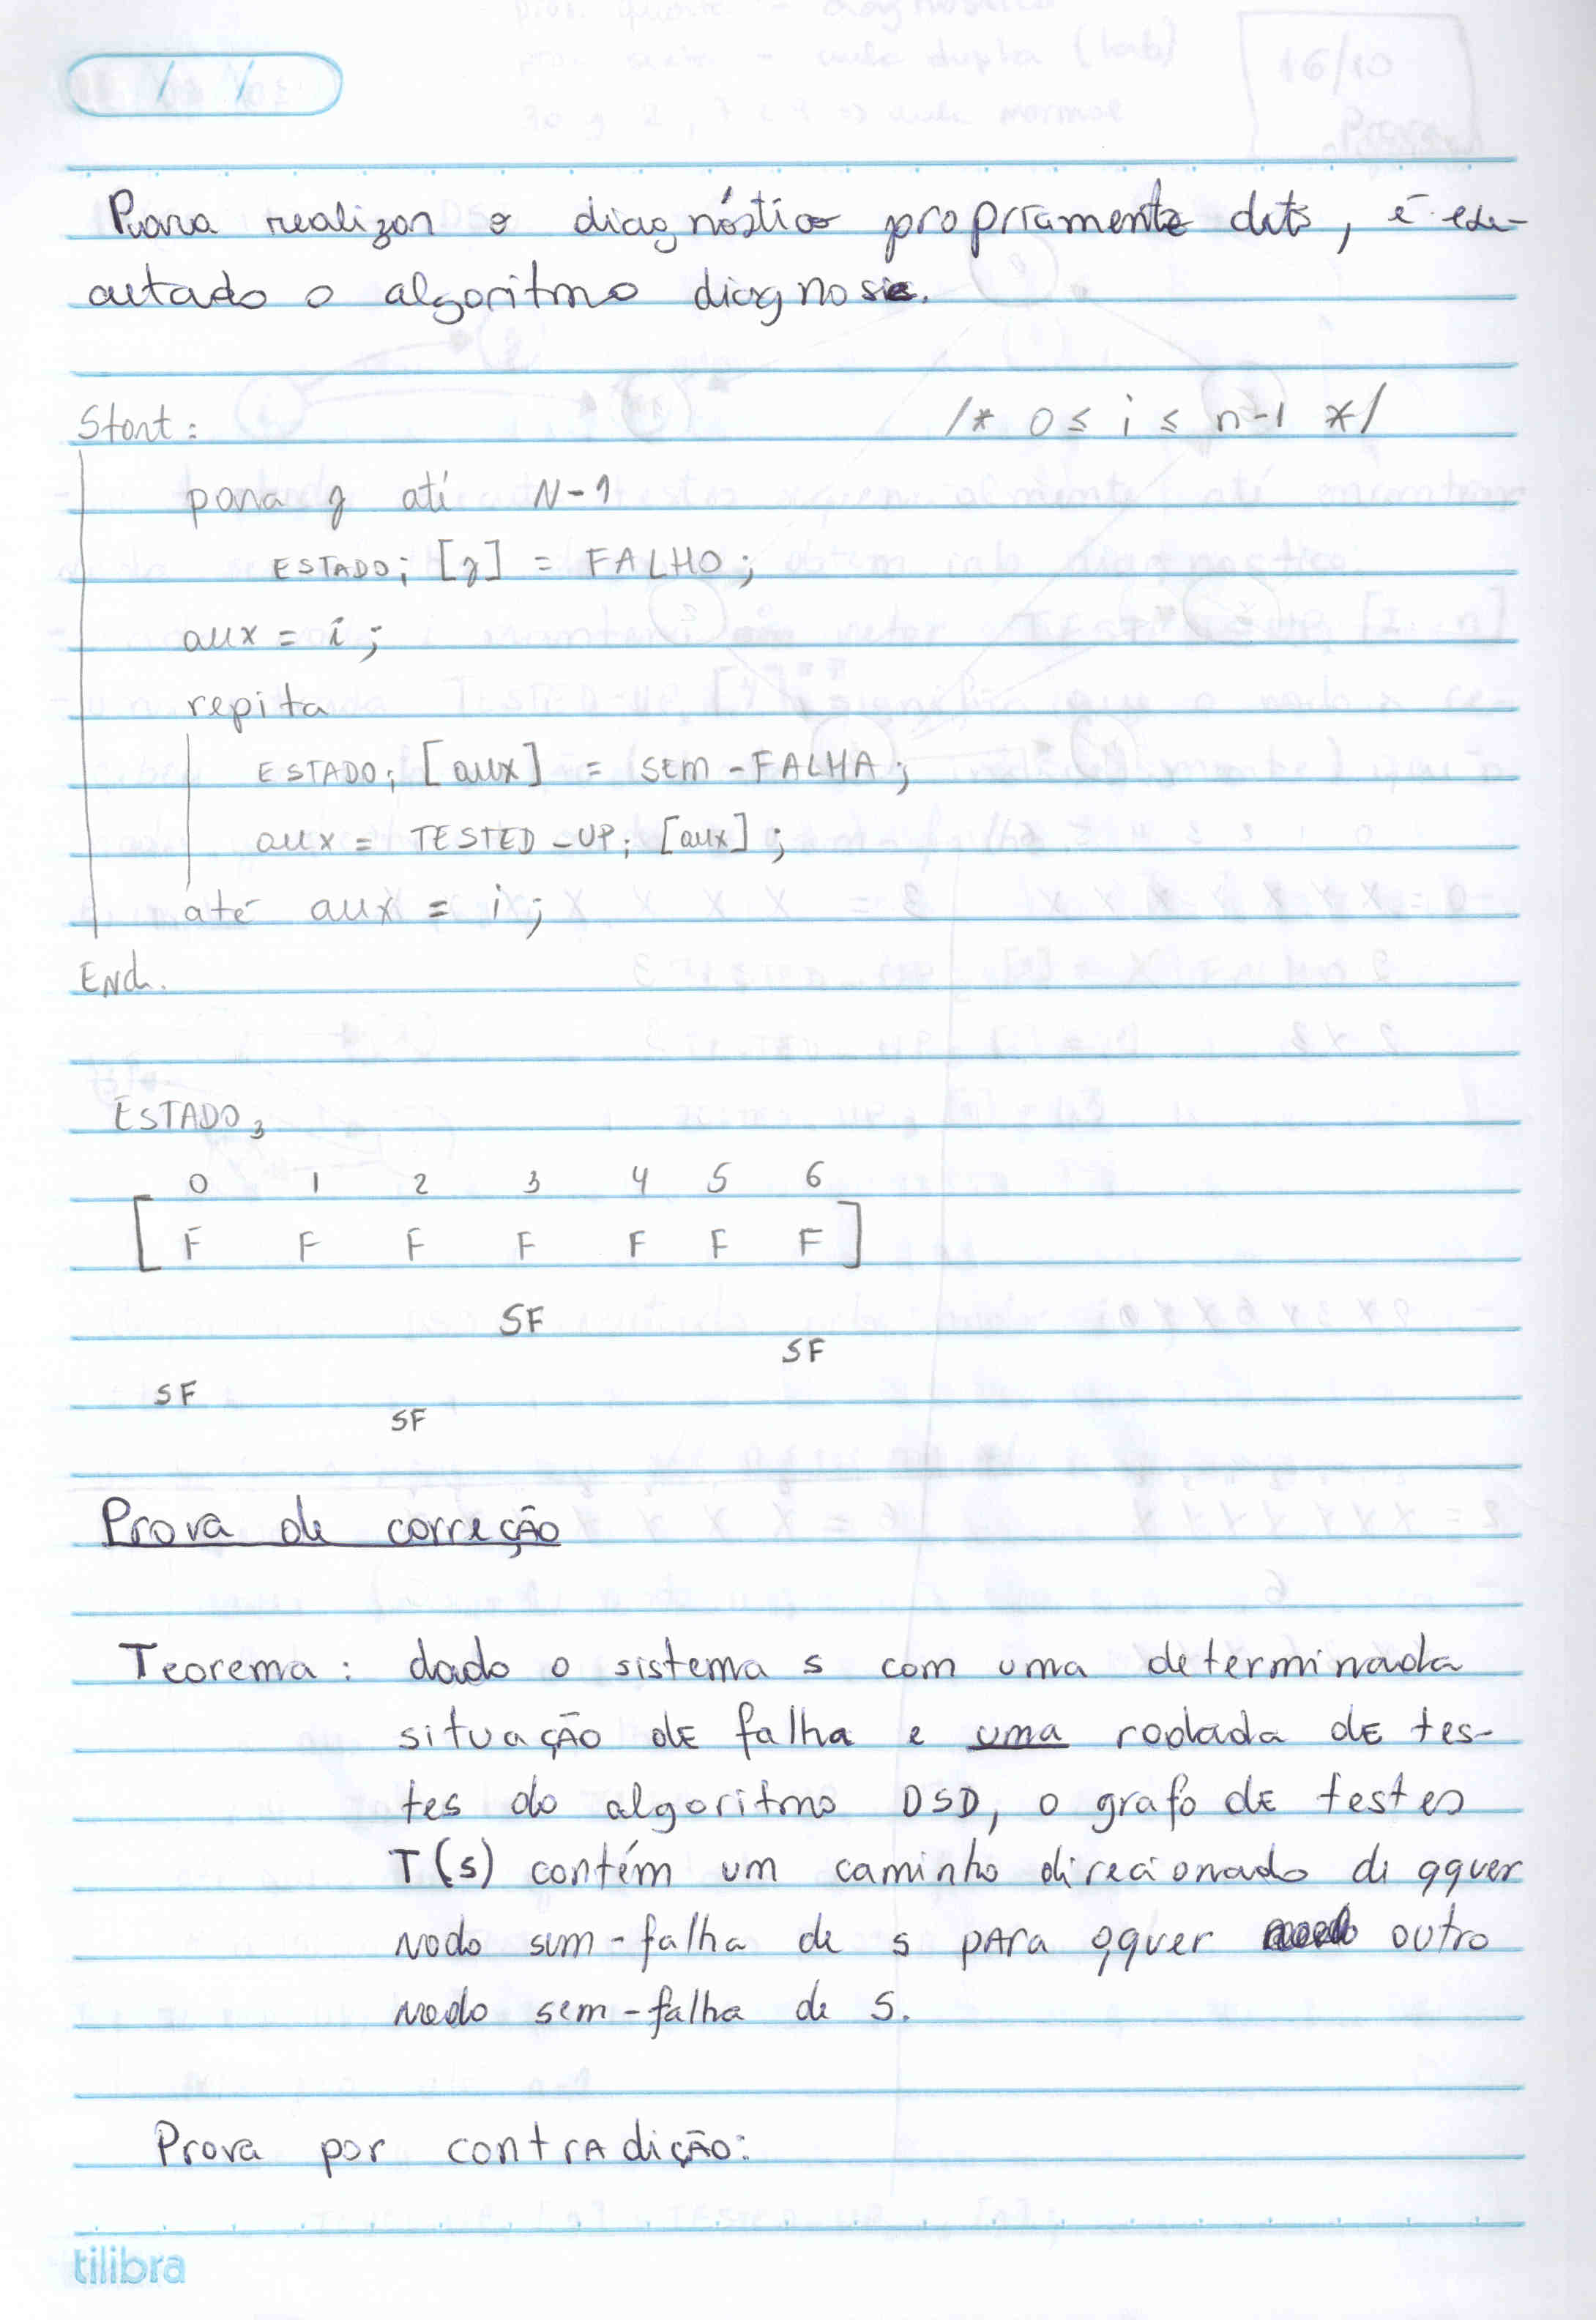 Para realizar o diagnóstico propriamente dito, é exe-
cutado o algoritmo diagnosis.
Start: /* 0 ≤ i ≤ n-1 */
para j até N-1
ESTADOi [j] = FALHO;
aux = i;
repita
ESTADOi [aux] = SEM-FALHA;
aux = TESTED-UPi [aux];
até aux = i;
End.
ESTADO3
0 1 2 3 4 5 6
[F F F F F F F]
SF
SF
SF
SF
Prova de correção
Teorema: dado o sistema s com uma determinada
situação de falha e uma rodada de tes-
tes do algoritmo DSD, o grafo de testes
T(s) contém um caminho direcionado de qquer
nodo sem-falha de s para qquer outro
nodo sem-falha de S.
Prova por contradição:
tilibra